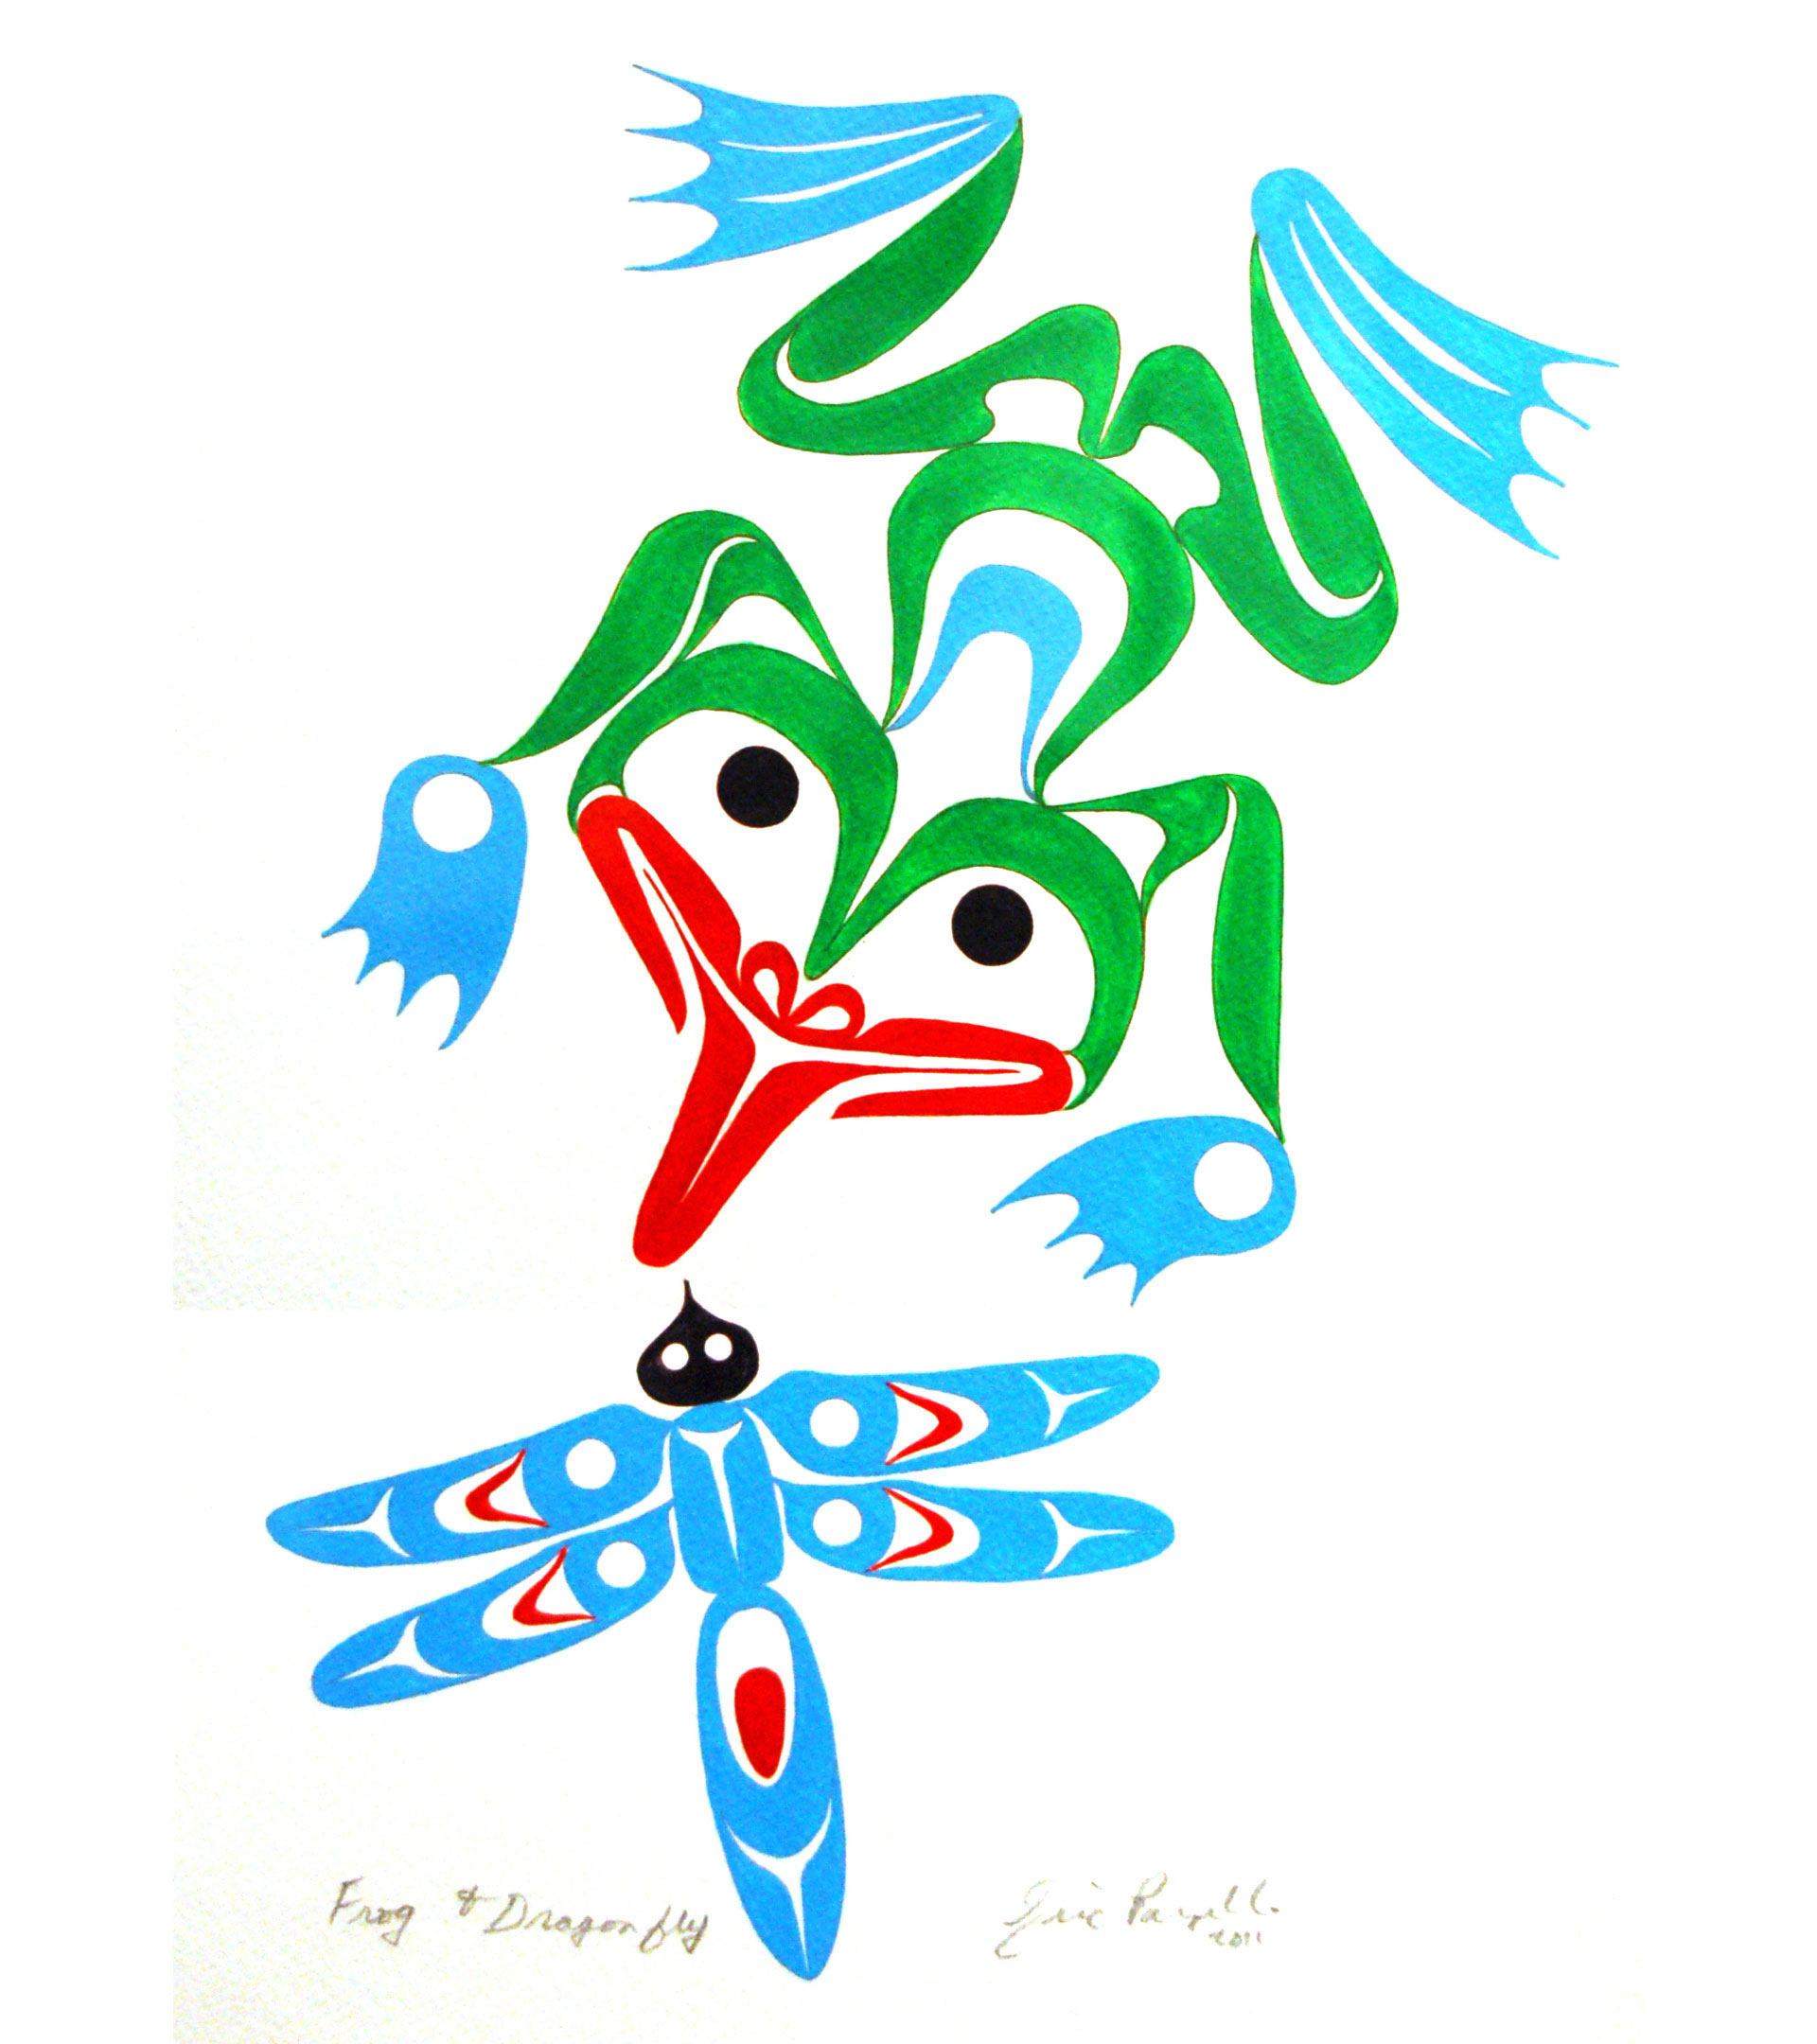 Frog & Dragonfly
Eric Parnell
2011